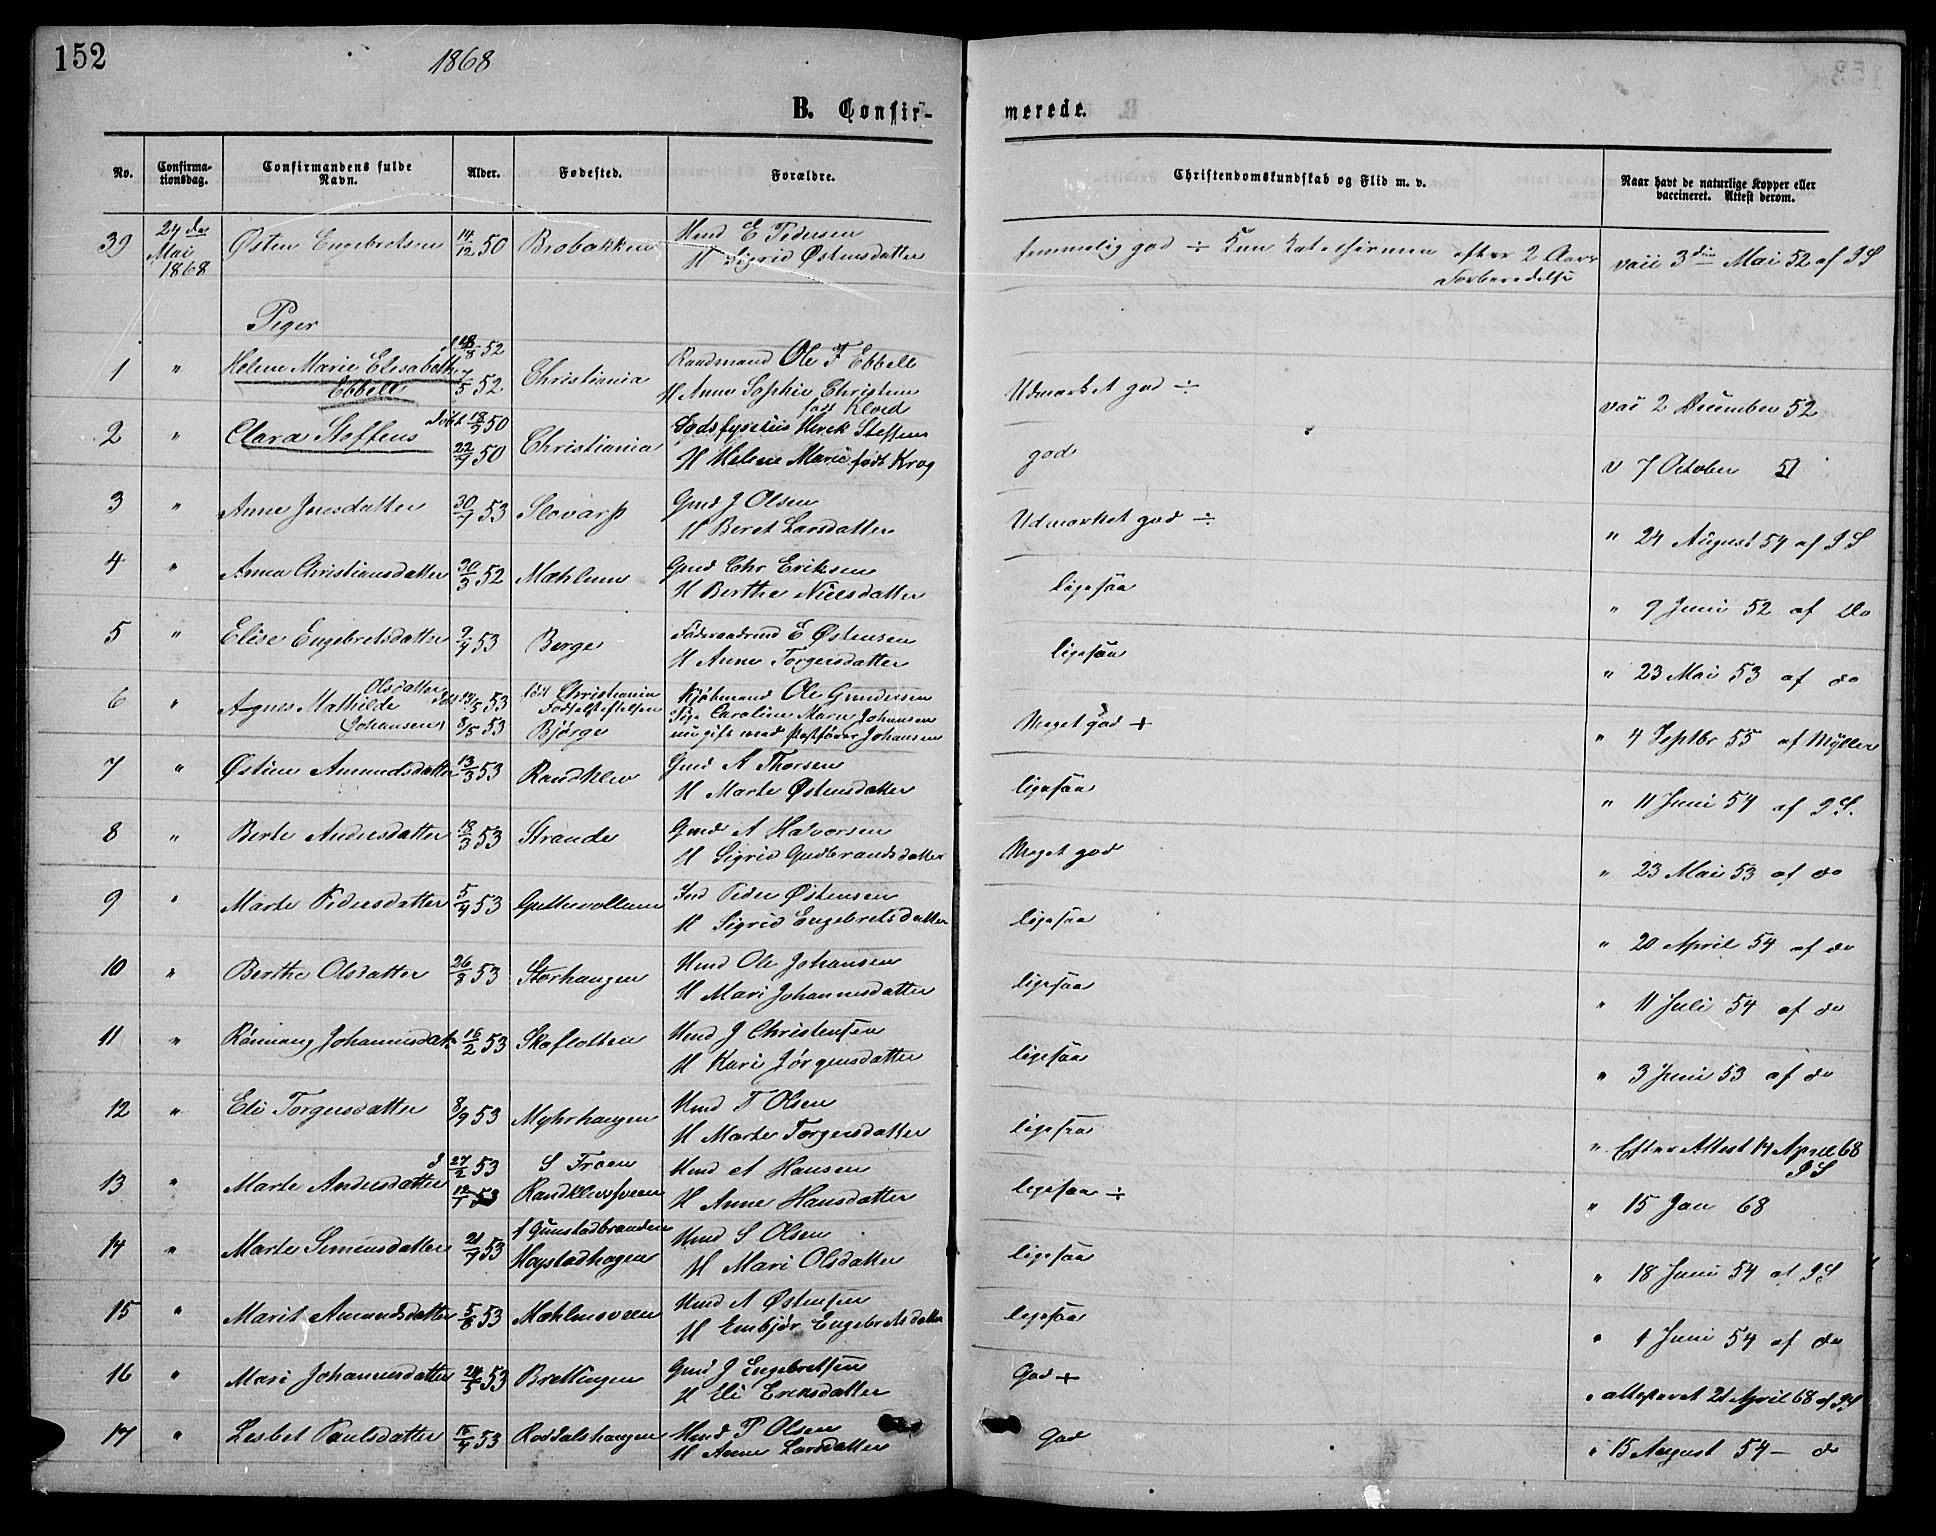 152
1868
B. Confir-
merede.
No.
Confirma-
tionsdag.
Confirmandens fulde
Navn.
Alder.
Fødested.
Forældre.
Christendomskundskab og Flid m. v.
Naar havt de naturlige Kopper eller
vaccineret. Attest derom.
39 24de Mai 1868 Østen Engebretsen 14/12 50 Brobakken Hmd E Pedersen
H Sigrid Østensdatter
temmelig god ÷ Kun efter 2 Aars
Forberedelse
vacc 3die Mai 52 af IS
Piger
1 " Helene Marie Elisabeth
Ebbell
18/8 52
7/5 52 Christiania Raadmand Ole F Ebbell
H Anna Sophie Christine
født
Udmærket god ÷ vac 2 December 52
2 " Clara Steffens døbt 18/9 50
22/7 50 Christiania Henrik Steffens
H Helene Marie født Krag
god v 7 October 51
3 " Anne Jensdatter 30/7 53 Slovarp Gmd J Olsen
H Beret Larsdatter
Udmærket god ÷ " 24 August 54 af IS
4 " Anna Christiansdatter 30/3 52 Mæhlum Gmd Chr Eriksen
H Berthe Nielsdatter
ligesaa " 9 Juni 52 af Do
5 " Elise Engebretsdatter 9/4 53 Berge Føderaadmd E Østensen
H Anne Torgersdatter
ligesaa " 23 Mai 53 af do
6 " Agnes Mathilde Olsdatter
(Johansen)
53
8/5 53 Christiania
Fødselsstiftelsen
Bjørge Kjøbmand Ole Gundersen
Pige Caroline Marie Johansen
nu gift med Postfører Johansen
Meget god + " 4 Septbr 55 af Myller
7 " Østine Amundsdatter 13/3 53 Randklev Gmd A Thorsen
H Marte Østensdatter
ligesaa " 11 Juni 54 af IS.
8 " Berte Andersdatter 18/3 53 Strande Gmd A Halvorsen
H Sigrid Gudbrandsdatter
Meget god " 23 Mai 53 af do
9 " Marte Pedersdatter 5/4 53 Guttevollum Ind Peder Østensen
H Sigrid Engebretsdatter
ligesaa " 20 April 54 af do
10 " Berthe Olsdatter 26/8 53 Storhaugen Hmd Ole Johansen
H Mari Johannesdatter
ligesaa " 11 Juli 54 af do
11 " Rønnaug Johannesdat. 16/2 53 Skaflotten Hmd J Christensen
H Kari Jørgensdatter
ligesaa " 3 Juni 53 af do
12 " Eli Torgersdatter 8/9 53 Myhrhaugen Hmd T Olsen
H Marte Torgersdatter
ligesaa " Efter Attest 14 April 68
IS
13 " Marte Andersdatter 27/2 53
12/1 53 S Froen
Randklevsveen Hmd A Hansen
H Anne Hansdatter
ligesaa ÷ " 15 Jan 68
14 " Marte Simensdatter 21/7 53 f Gunstadbranden
Haystadhagen Hmd S Olsen
H Mari Olsdatter
ligesaa " 18 Juni 54 af IS
15 " Marit Amundsdatter 5/8 53 Mæhlumsveen Hmd A Østensen
H Embjør Engebretsdatter
ligesaa " 4 Juni 54 af do
16 " Mari Johannesdatter 24/5 53 Brettingen Gmd J Engebretsen
H Eli Erensdatter
God + " attesteret 21 April 68 af IS
17 " Lesbet Paulsdatter 15/7 53 Roddalshaugen Hmd P Olsen
H Anne Larsdatter
God " 15 August 54 — do